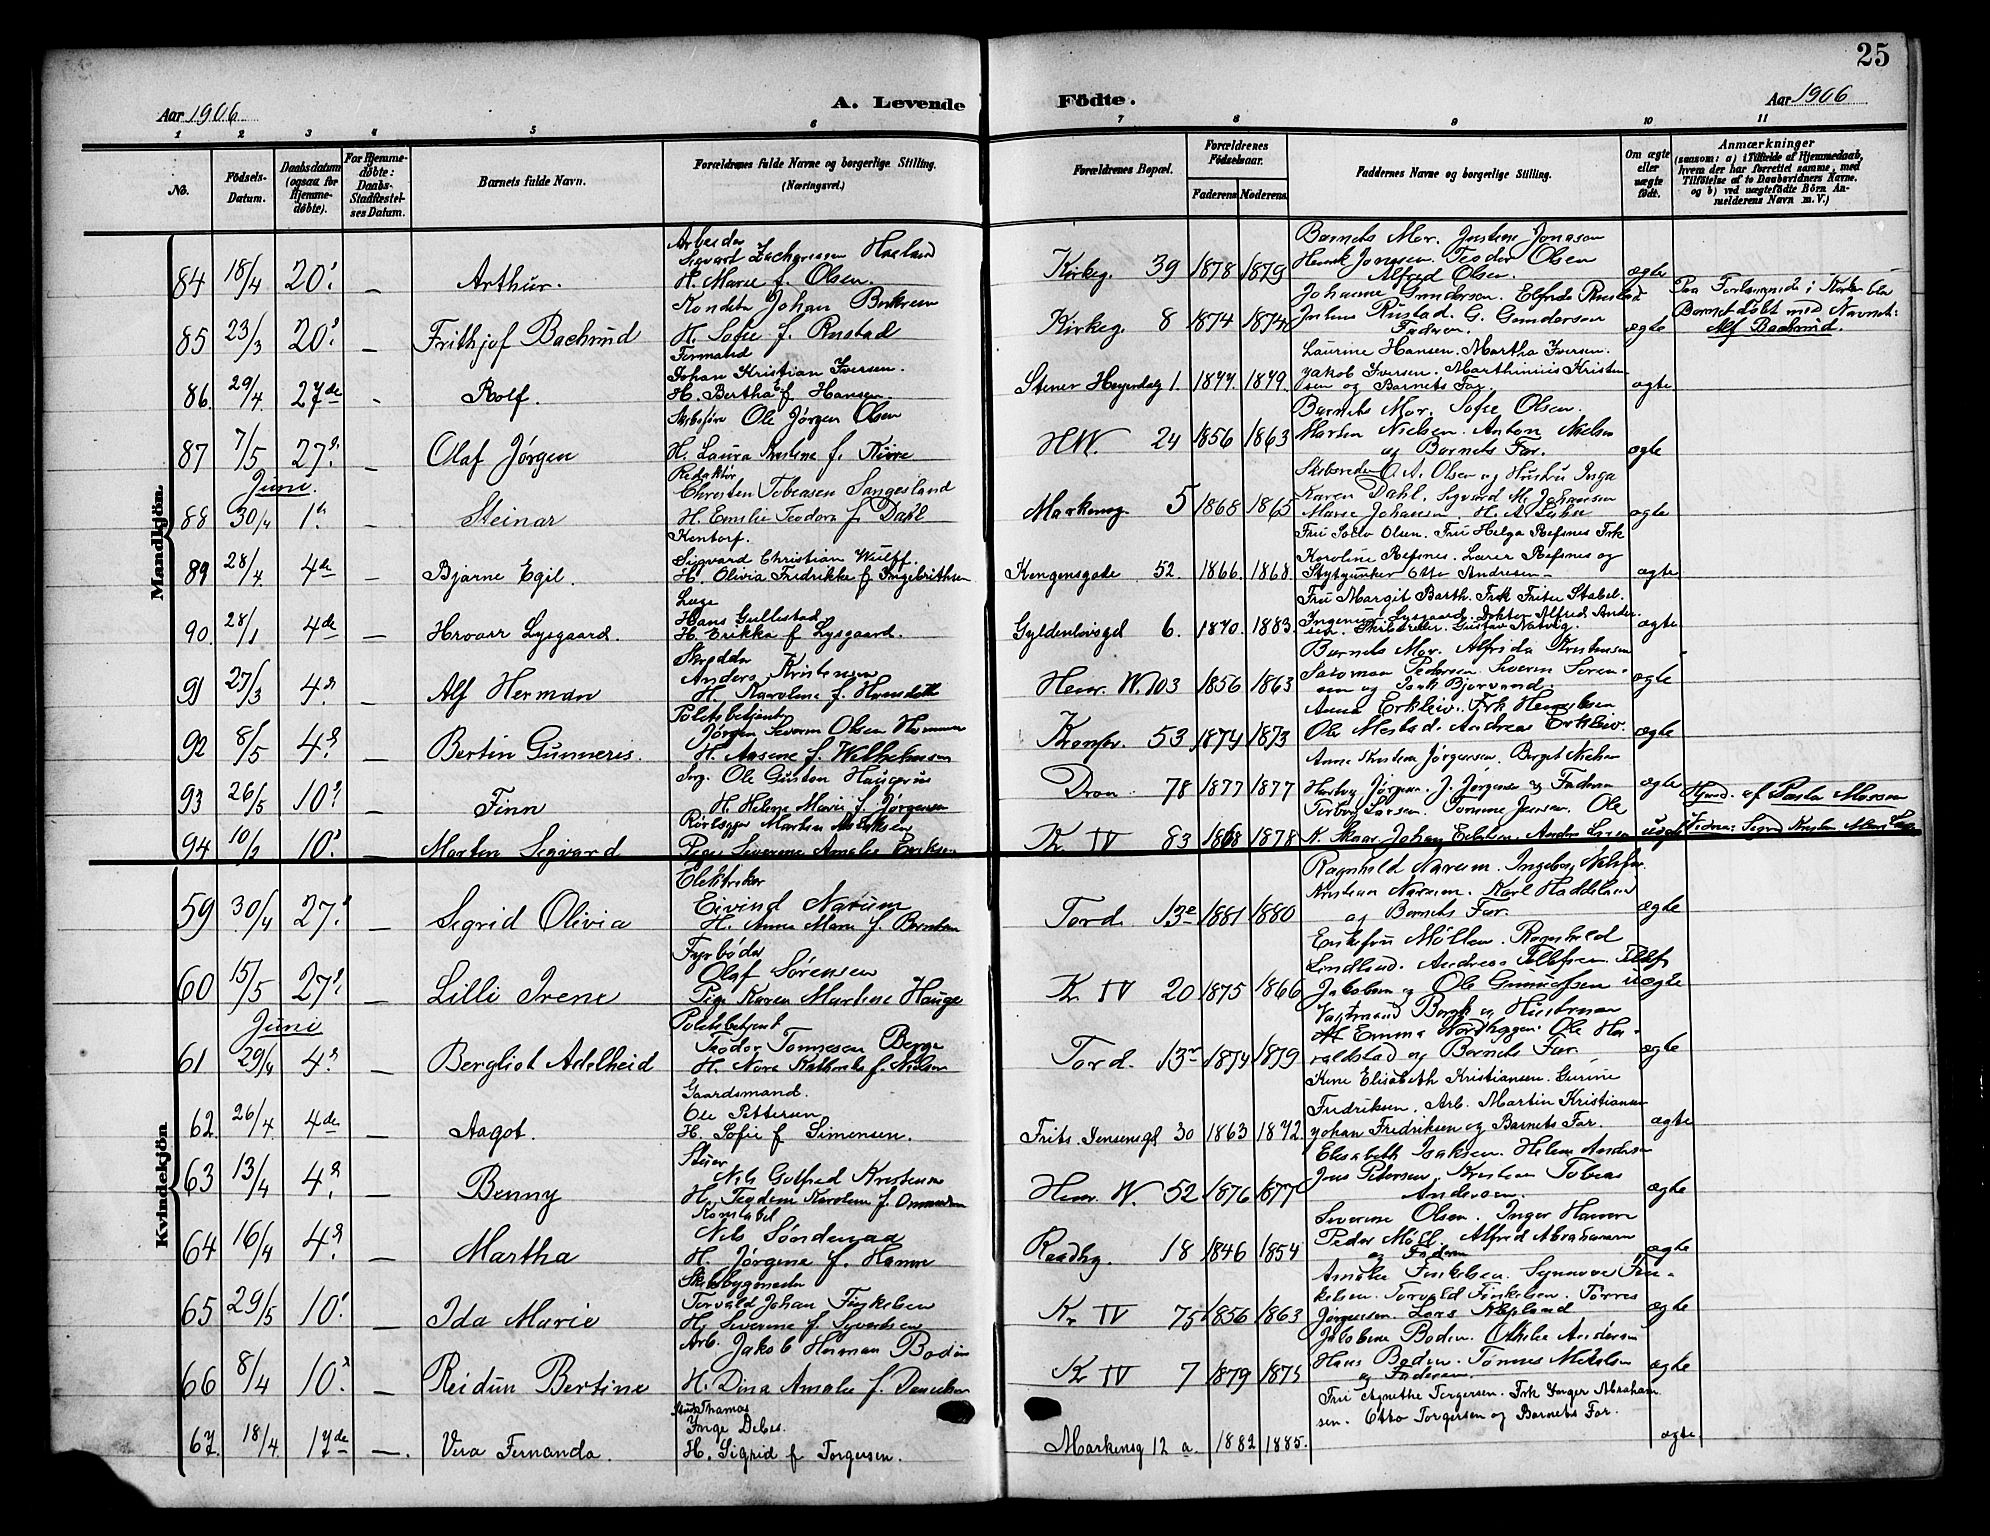 25
Aar 1906
A. Levende
Födte.
Aar 1906
1 2 3 4 5 6 7 8 9 10 11
No.
Födsels-Datum.
Daabsdatum (ogsaa for Hjemmedøbte).
For Hjemmedøbte: Daabs-Stadfæstelses Datum.
Barnets fulde Navn.
Forældrenes fulde Navne og borgerlige Stilling.
(Næringsvei.)
Forældrenes Bopæl.
Forældrenes Födselsaar.
Faderens Moderens
Faddernes Navne og borgerlige Stilling.
Om ægte eller uægte födt.
Anmærkninger
(saasom: a) i Tilfælde af Hjemmedaab, hvem der har forrettet samme, med Tilföielse af to Daabsvidners Navne. og b) ved uægtefödte Börn Anmelderens Navn m. V.)
Mandkjön.
84 18/4 20. — Arthur.
Arbeider
Sigvart Zachariassen
H. Marie f. Olsen.
Kirkeg. 39 1878 1879
Barnets Mor. Justine Jonasen
Henrik Jonasen. Teodor Olsen
Alfred Olsen.
ægte
85 23/3 20. — Frithjof Bachrud
Johan
H. Sofie f. Rustad
Kirkeg. 8 1874 1874
Johanne Gundersen. Elfrida Rustad
Julius Rustad. G. Gundersen
Faderen.
ægte
Barnet døbt med Navnet:
Alf Bachrud.
86. 29/4 27de - Rolf.
Formand
Johan Kristian Iversen.
H. Bertha E. f. Hansen.
Stener Heyerdalg 1. 1877. 1879.
Laurine Hansen. Martha Iversen.
Jakob Iversen. Marthinius Kristen
sen og Barnets Far.
ægte
87 7/5 27. — Olaf Jørgen
Ole Jørgen Olsen
H. Laura f.
H.W. 24 1856 1863
Barnets Mor. Sofie Olsen.
Martin Nielsen. Anton Nielsen
og Barnets Far.
ægte
Juni.
88 30/4 1. — Steinar
Redaktør
Christen Tobiasen Sangesland
H. Emilie Teodora f. Dahl
Markensg. 5 1868 1865
O. A. Olsen og Hustru Inga
Karen Dahl. Sigvard M. Johansen
Marie Johansen.
ægte
89 28/4 4de — Bjarne Egil.
Sigvard Christian Wulff
H. Olivia Fredrikke f. Ingebrithsen
Kongensgade 52. 1866. 1868.
Olsen. Fru Helga Refsnes Frk
Karoline Refsnes. Lærer Refsnes og
Otto Andresen —
ægte
90. 28/1 4de — Hroarr Lysgaard.
Læge
Hans Gullestad
H. Erikka f. Lysgaard.
Gyldenlövsgd 6. 1870. 1883.
Fru Margit Barth. Frk Fritze Stabel.
Ingeniør Lysgaard. Doktor Alfred Ander-
sen. Gustav Natvig.
ægte
91 27/3 4. — Alf Herman
Skrædder
Anders Kristensen
H. Karoline f.
Henr. W. 103 1856 1863
Barnets Mor. Alfrida Kristensen
Salomon Pedersen. Severin Soren-
sen og Bjorvand.
ægte
92 8/5 4. — Bertin Gunneris.
Politibetjent
Jørgen Severin Olsen
H. Aasene f. Wilhelmsen
Kronpr. 53 1874 1873
Anna Erklev. Frk Henriksen
Ole Mestad. Andreas Erklev.
ægte
93 26/5 10. — Finn
Ole Gustav
H. Helene Marie f. Jørgensen
Dron. 78 1877 1877
Anne Kristine Jørgensen. Berget
Jørgen. J. Jørgensen og Faderen
ægte
94 10/2 10. — Morten Sigvard
Morten
Pige Severine Amalie Eriksen
K IV 83 1868 1878
Larsen. Jensen. Ole
K. Skaar. Johan
uægte
Kvindekjön
59 30/4 27. — Sigrid Olivia
Elektriker
Eivind Narum
H. Anna Marie f. Berntsen
Tord. 13e 1881 1880
Ragnhild Narum. Ingeborg
Kristian Narum. Karl Haddeland
og Barnets Far.
ægte
60 15/5 27. — Lilli Irene
Fyrbøder
Olaf Sørensen
Pige Karen Martine Hauge
K IV 20 1875 1866
Enkefru Møller. Ragnhild
Lindland. Andreas Tellefsen. Tellef
Jakobsen og Ole Gunuldsen
uægte
Juni
61 29/4 4. — Bergliot Adelheid
Politibetjent
Teodor Tønnesen Berge
H. Nora Kathinka f. Nielsen
Tord. 13 1874 1879
og Hustruen
Emma Nordhagen. Ole Ha-
raldstad og Barnets Far.
ægte
62. 26/4. 4de — Aagot.
Gaardsmand.
Ole Pettersen
H. Sofie f. Simensen.
Frits. Jensensgd 30 1863 1872.
Kine Elisabeth Kristiansen. Gurine
Fredriksen. Arb. Martin Kristiansen
Johan Fredriksen og Barnets Far.
ægte
63 13/4 4. — Benny
Nils Gotfred Kristensen
H. Karoline f.
Henr. W. 52 1876 1877
Elisabeth Isaksen. Helene Andersen
Jens Petersen. Kristian Tobias
Andersen.
ægte
64 16/4 4. — Martha
Konstabel
Nils Søndenaa
H. Jørgine f. Hamre
Raadhg. 18 1846 1854
Severine Olsen. Inger Hamre
Peder Møll. Alfred Abrahamsen
og Faderen
ægte
65 29/5 10. — Ida Marie
Skibbygmester
Torvald Johan Finkelsen
H. Severine f. Syvertsen
Kr IV 75 1856 1863
Amalie Finkelsen. Synnøve Fin-
kelsen. Torvald Finkelsen. Torres
Jørgensen. Lars
ægte
66 8/4 10. — Reidun Bertine
Arb. Jakob Herman Bodin
H. Dina Amalie f. Danielsen
K IV 7 1879 1875
Jakobine Bodin. Othilie Andersen
Hans Bodin. Tønnes
og Faderen.
ægte
67. 18/4 17de —. Vera Fernanda.
Thomas
Inge Debes.
H. Sigrid f. Torgersen.
Markensg 12 a. 1882 1885.
Fru Agnethe Torgersen. Frk Inger Abraham
sen. Otto Torgersen og Barnets Far.
ægte.